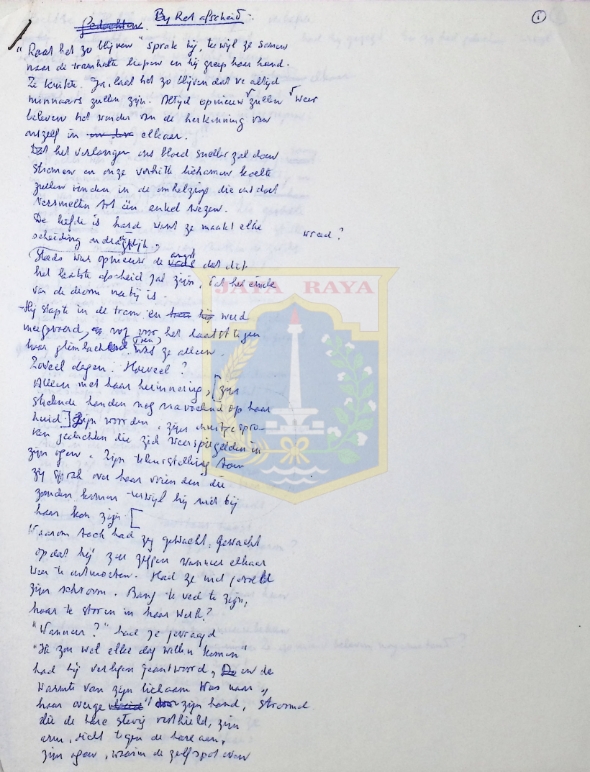 Gedachten By het afscheid. 1
"Laat het zo blijven sprak hij, terwijl ze samen
naar de tramhalte liepen en hij greep haar hand.
Ze knikte. Ja, laat het zo blijven dat we altijd
minnaars zullen zijn. Altijd opnieuw zullen weer
beleven het wonder van de herkenning van
onszelf in elkaar.
Dat het verlangen ons bloed sneller zal doen
stromen en onze verhitte lichamen koelte
zullen vinden in de omhelzing die ons doet
versmelten tot één enkel wezen.
De liefde is hard want ze maakt elke
scheiding wreed?
Steeds was opnieuw de angst dat dit
het laatste afscheid zal zijn, dat het einde
van de droom nabij is.
Hij stapte in de tram en hij werd
meegevoerd, voor het laatst tegen
haar toen was ze alleen.
Zoveel dagen. Hoeveel?
Alleen met haar herinnering, zijn
strelende handen nog op haar
huid zijn woorden, zijn
gedachten die zich weerspiegelden in
zijn ogen. Zijn teleurstelling toen
zij sprak over haar vrienden die
zouden komen terwijl hij niet bij
haar kon zijn.
Waarom toch had zij gewacht, gewacht
opdat hij zou zeggen wanneer elkaar
weer te ontmoeten. Had ze niet gevoeld
zijn schroom. Bang te veel te zijn,
haar te storen in haar werk?
"Wanneer?" had ze gevraagd
"Ik zou wel elke dag willen komen"
had hij verlegen geantwoord, en de
warmte van zijn lichaam was naar
haar zijn hand, stromend
die de hare stevig vasthield, zijn
arm, dicht tegen de hare aan,
zijn ogen, waarin de zelfspot
JAYA RAYA